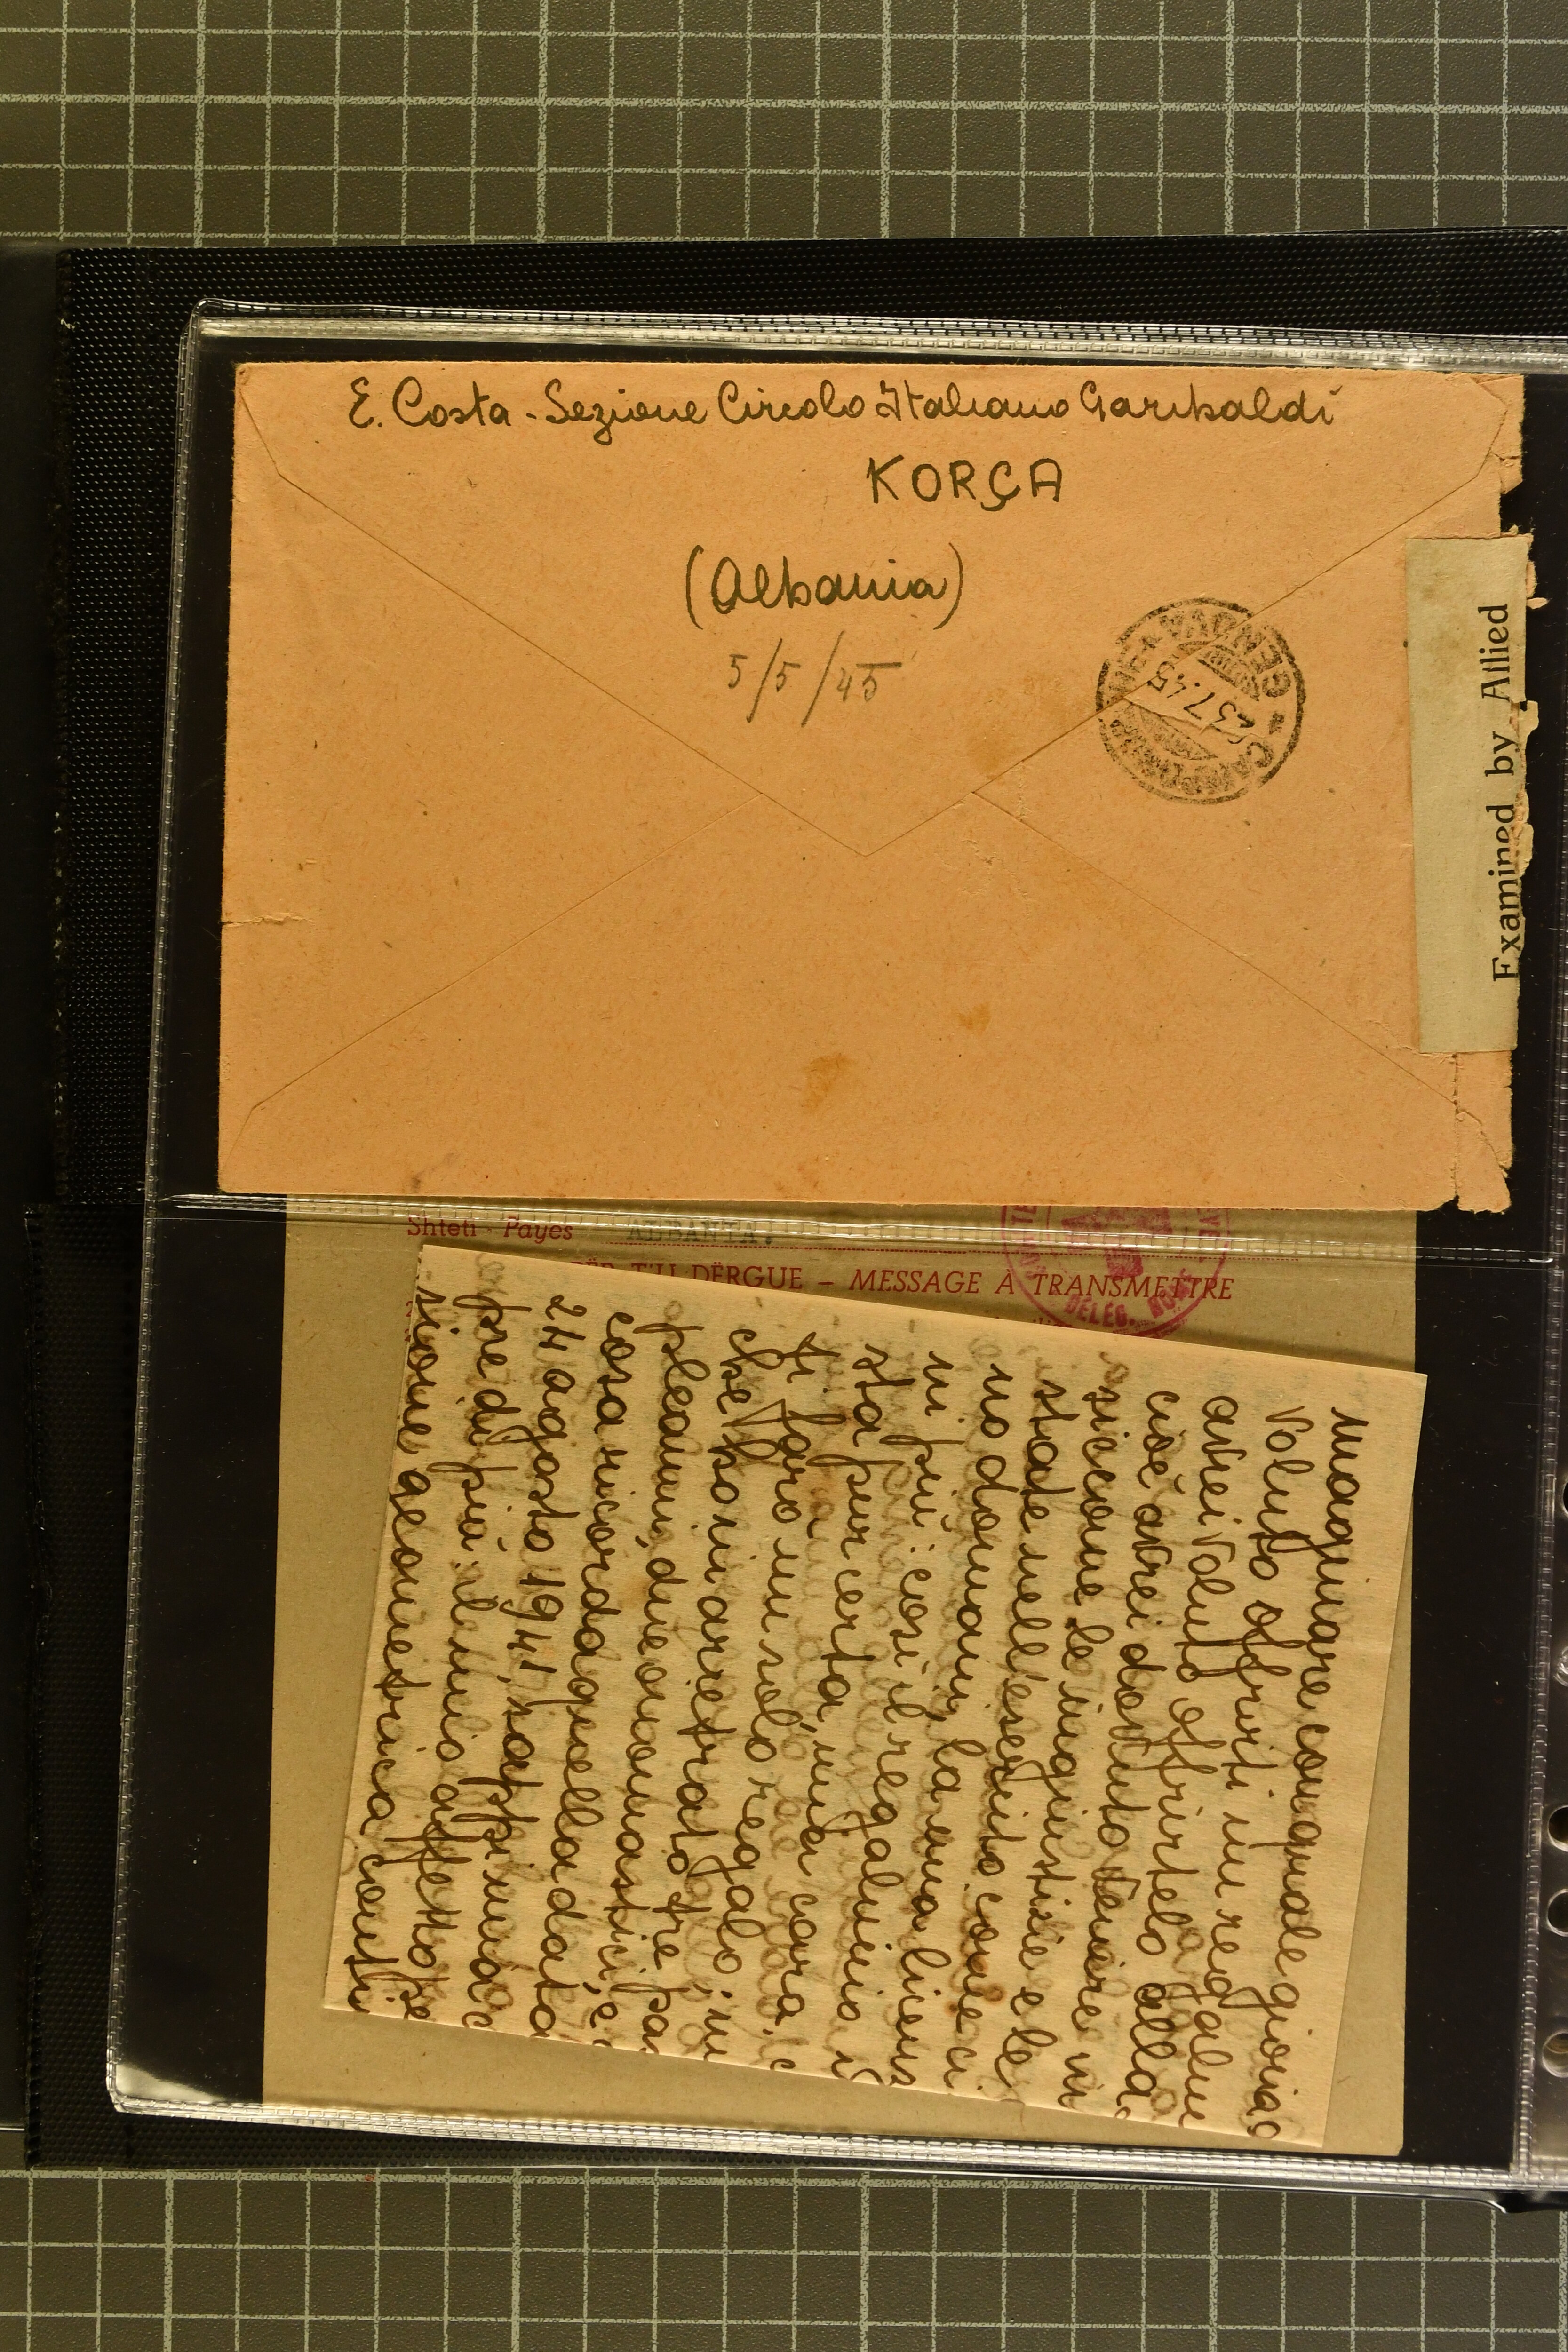 E. Costa - Sezione Circolo Italiano Garibaldi
KORÇA
(Albania)
5/5/45
GENOVA
23.7.45
Examined by Allied
Shteti - Payes ALBANIA.
DËRGUE – MESSAGE À TRANSMETTRE
DELEG.
maginare con quale gioia a
voluto offrirti un regalin
avrei voluto offrirtelo
cioè avrei dovuto venire in
siccome le ingiustizie e le
state nell'esercito come ci
no domani, la mia licenz
ni più: così il regalino
sta pur certa, mia cara. c
ti farò un solo regalo; un
che ho in arretrato tre
pleanni, due onomastici, e
cosa ricorda quella data
24 agosto 1941, sappi mia c
pre di più: il mio affetto pe
sione geometrica conti